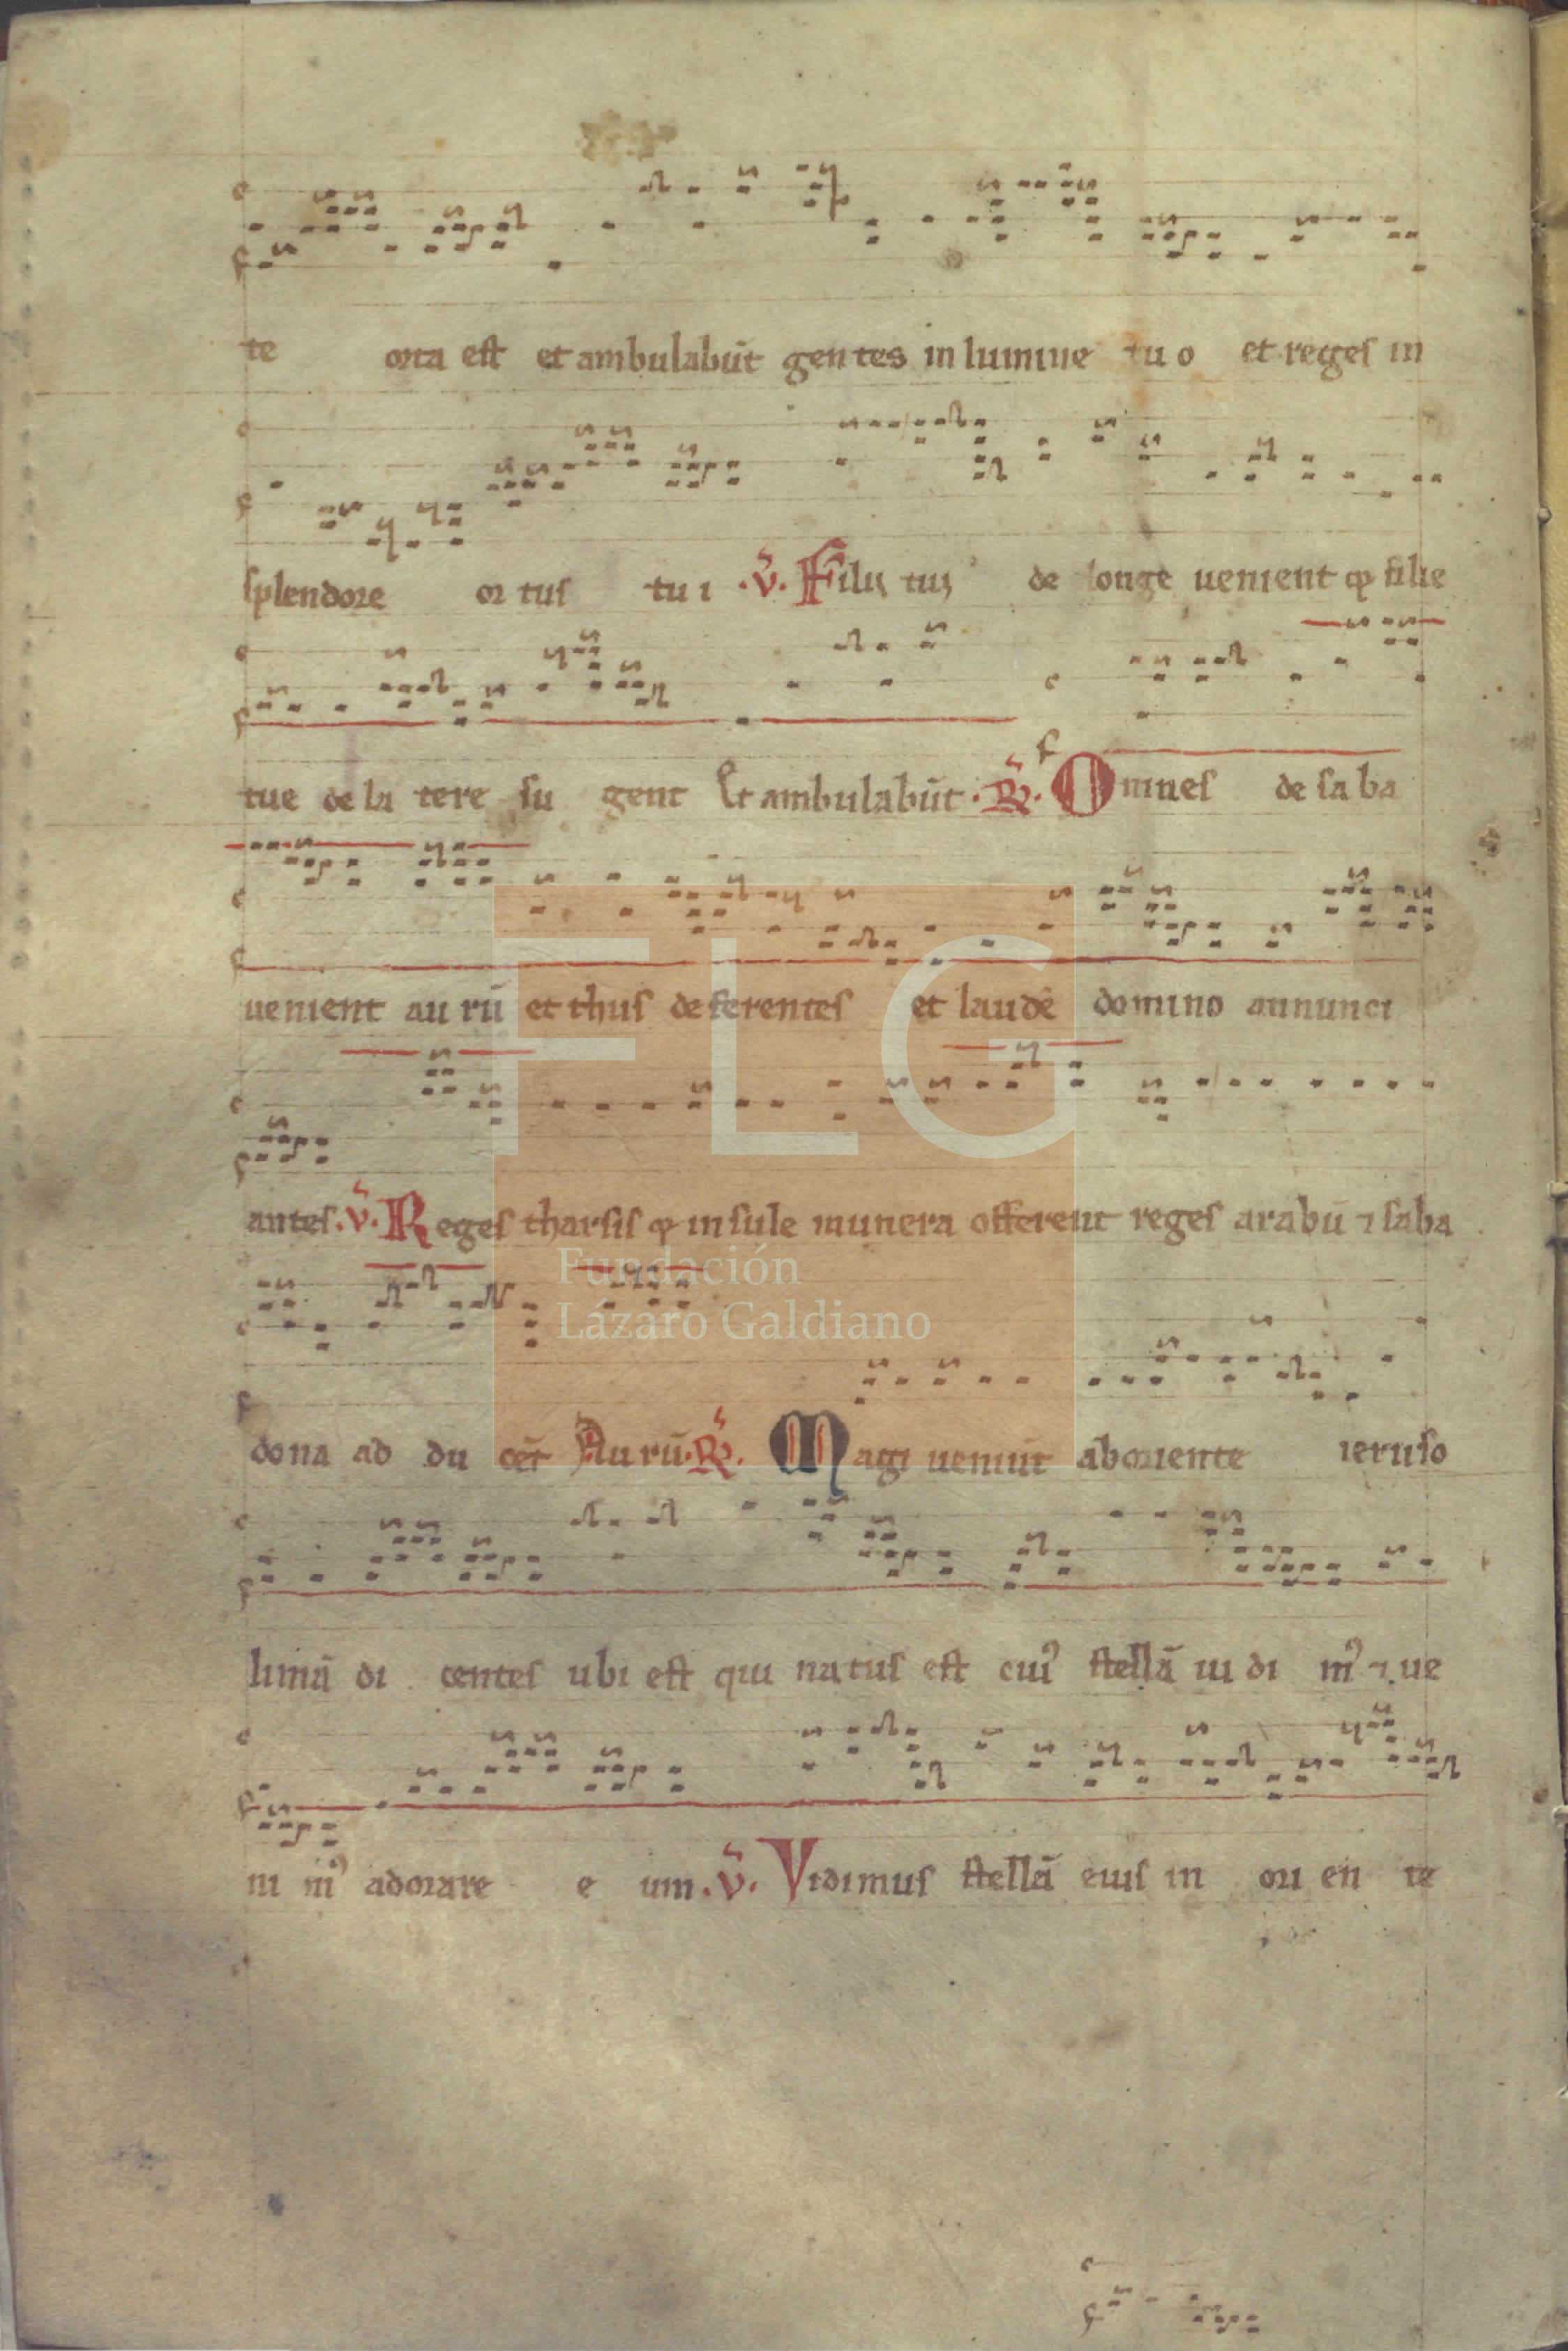 te orta est et ambulabūt gentes in lumine tuo et reges in
splendore ortus tui .v̄. Filii tui de longe uenient ꝙ filie
tue de latere su gent Et ambulabūt. R̄. Omnes de saba
uenient aurū et thus deferentes et laudē domino annunci
antes. v̄. Reges tharsis ꝙ insule munera offerent reges arabū ⁊ saba
dona ad du cēt Aurū. R̄. Magi ueniūt ab oriente ieruso
limā di centes ubi est qui natus est cuiꝰ stellā uidi mꝰ ⁊ ue
ni mꝰ adorare e um. v̄. Vidimus stellā eius in ori en te
FLG
Fundación
Lázaro Galdiano